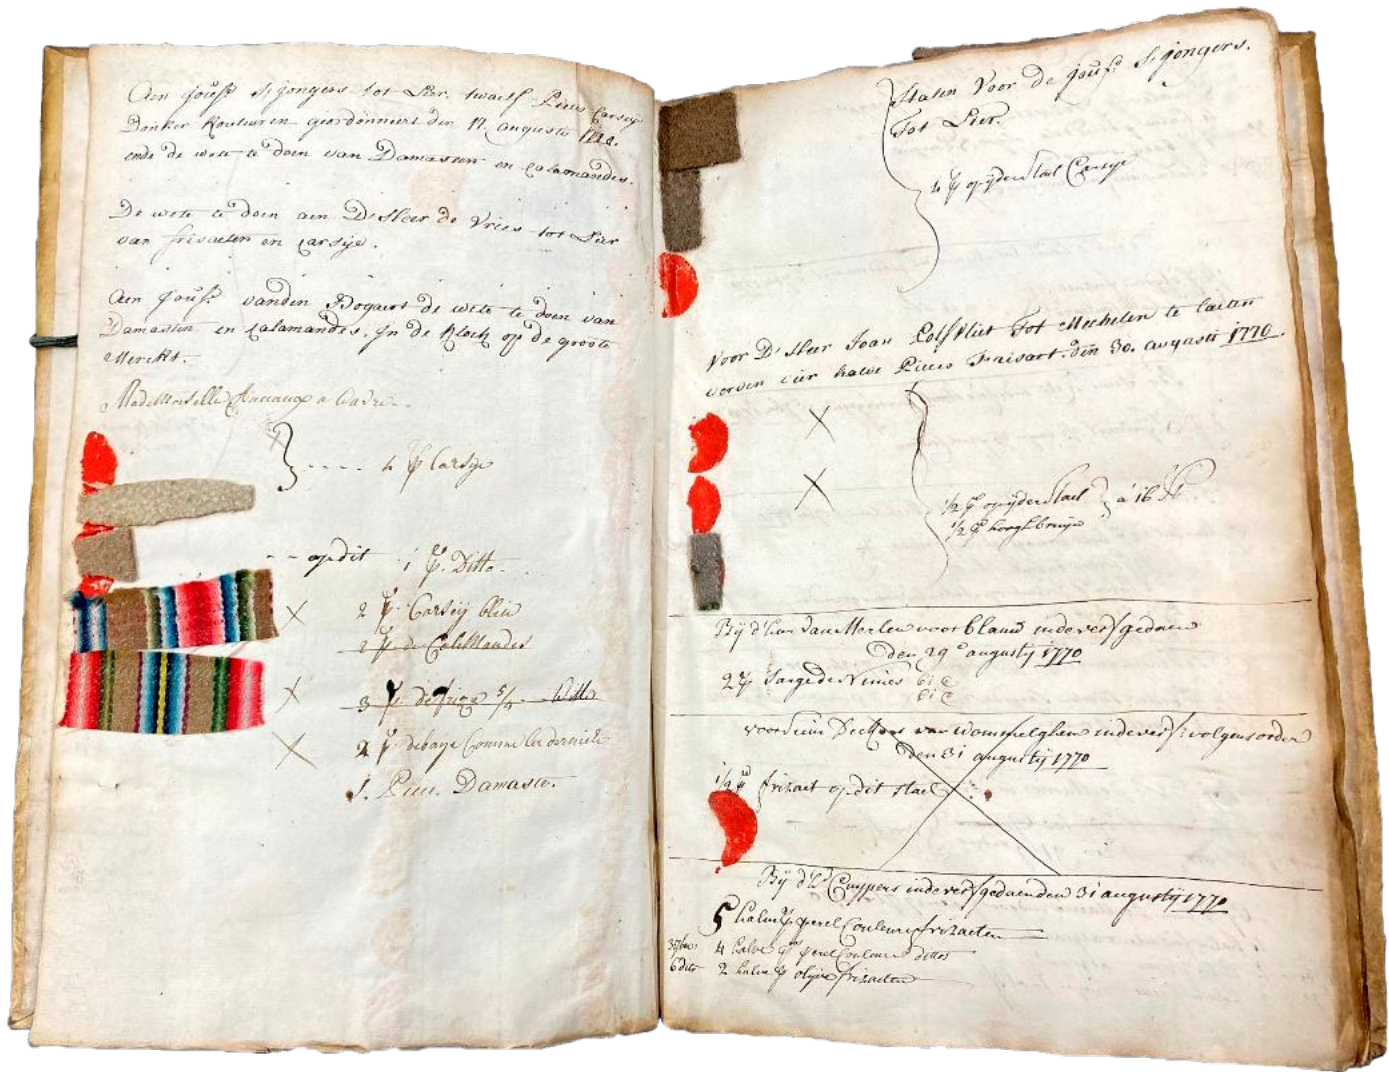 Aen Joufr S, Jongers tot Lier. twaelf Pieces Carseij
Donker Kouleuren geordonneert den 17. augusti
ende de wete te doen van Damasten en Calamandes.
De wete te doen aen Dheer de Vries tot Lier
van frisaeten en Carsije.
Aen Joufr vanden Bogaert de wete te doen van
Damasten en Calamandes. In de Klock op de groote
Merckt.
Mademoiselle a
4 p Carsije
op dit 1 p. Ditto
2 p Carseij bleu
2 p de Calemandes
3 p de frize 5/4 Witte
2 p de baye Comme la derniere
1. Piece Damaste.
Staelen Voor de Joufr S, Jongers.
Tot Lier.
4 p op ijder Stael Carsije
Voor D'Heer Joan Tot Mechelen te laeten
verven vier halve Pieces Frisaet. den 30. augusti 1770.
1/2 p op ijder Stael
1/2 p hooghbruijn
à 16
Bij d'heer van Merlen voor blauw inde verf gedaen
den 29 augustij 1770
2 p Sarge de Nimes
voor van Wommelghem inde verf volgens order
den 31 augustij 1770
1/2 p frisaet op dit stael
Bij d'hr Cuypers inde verf gedaen den 31 augustij 1770
5 halve p perel Couleure frisaeten
4 halve p perel Couleure dittos
6 dito 2 halve p olijve frisaeten